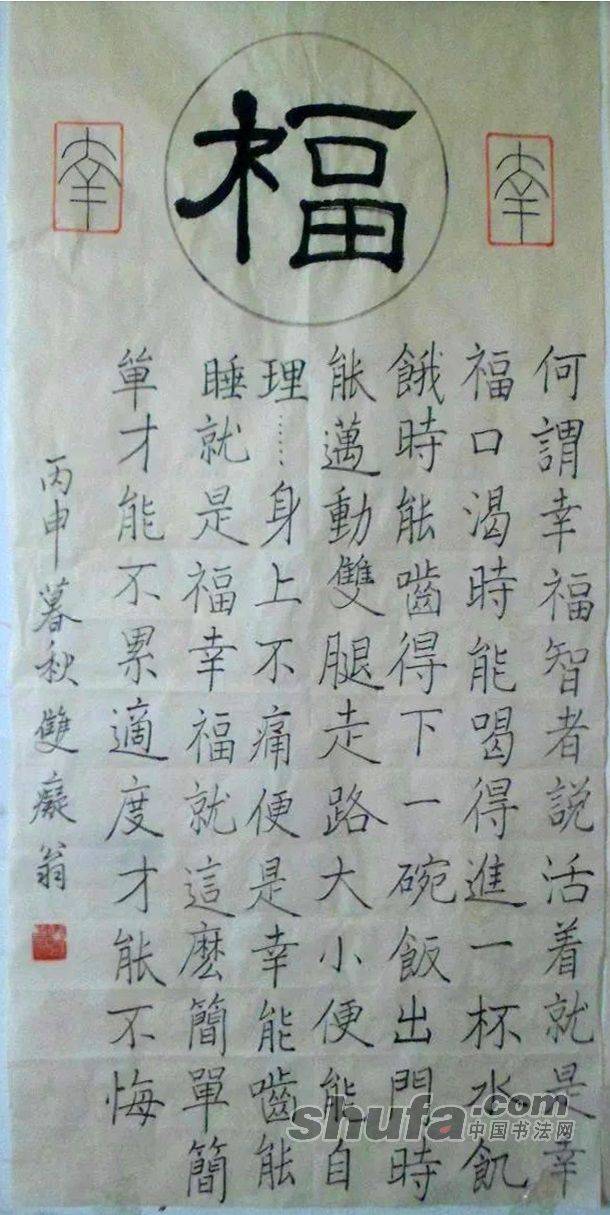 幸 福 幸
何謂幸福智者説活着就是幸
福口渴時能喝得進一杯水飢
餓時能嚙得下一碗飯出門時
能邁動雙腿走路大小便能自
理……身上不痛便是幸能嚙能
睡就是福幸福就這麼簡單簡
單才能不累適度才能不悔
丙申暮秋雙癡翁
shufa.com
中国书法网